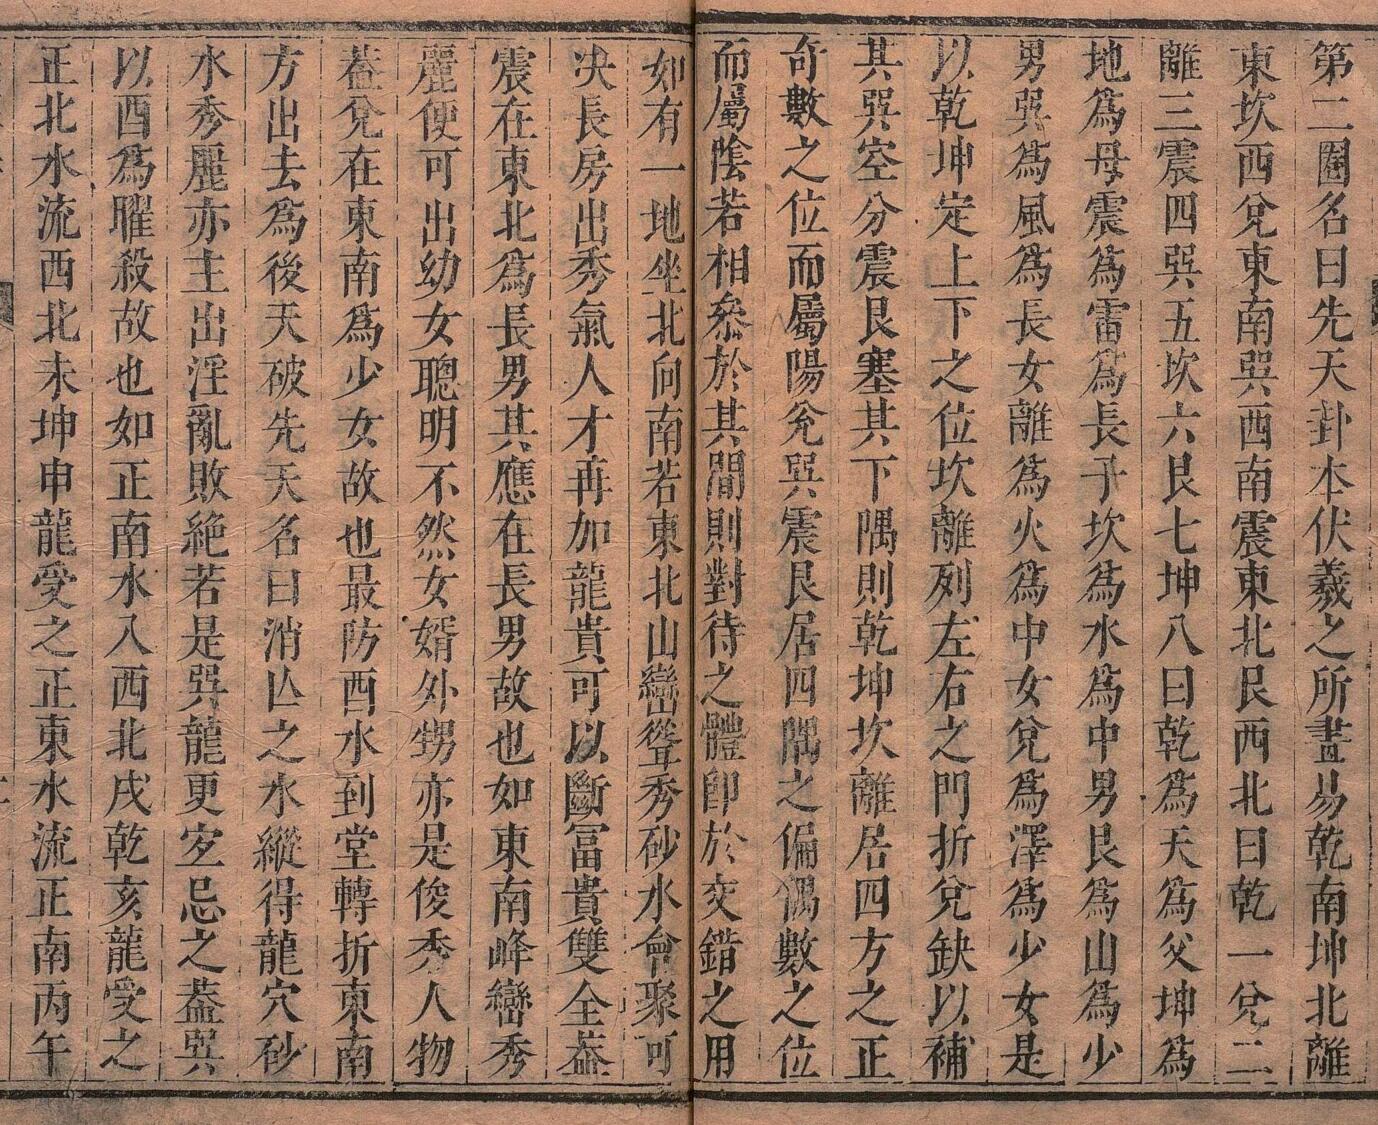 第二圈名曰先天卦本伏羲之所畫易乾南坤北離
東坎西兌東南巽西南震東北艮西北曰乾一兌二
離三震四巽五坎六艮七坤八曰乾爲天爲父坤爲
地爲母震爲雷爲長子坎爲水爲中男艮爲山爲少
男巽爲風爲長女離爲火爲中女兌爲澤爲少女是
以乾坤定上下之位坎離列左右之門折兌缺以補
其巽空分震艮塞其下隅則乾坤坎離居四方之正
奇數之位而屬陽兌巽震艮居四隅之偏偶數之位
而屬陰若相叅於其間則對待之體卽於交錯之用
如有一地坐北向南若東北山巒聳秀砂水會聚可
决長房出秀氣人才再加龍貴可以斷冨貴雙全葢
震在東北爲長男其應在長男故也如東南峰巒秀
麗便可出幼女聰明不然女婿外甥亦是俊秀人物
葢兌在東南爲少女故也最防酉水到堂轉折東南
方出去爲後天破先天名曰消亾之水縱得龍穴砂
水秀麗亦主出淫亂敗絶若是巽龍更宜忌之葢巽
以酉爲曜殺故也如正南水入西北戌乾亥龍受之
正北水流西北未坤申龍受之正東水流正南丙午